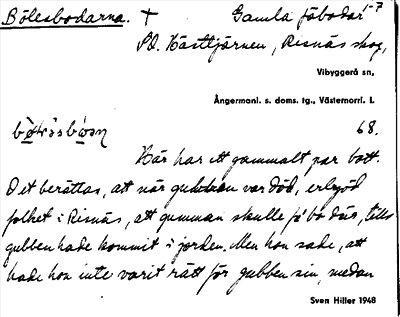 Bölesbodarna. + Gamla fäbodar 1-7
S.O. Hästtjärnen, Risnäs skog,
Vibyggerå sn,
Ångermanl. s. doms. tg., Västernorrl. l.
68.
Här har ett gammalt par bott.
Det berättas, att när gubben var död, erbjöd
folket i Risnäs, att gumman skulle få bo där, tills
gubben hade kommit i jorden. Men hon sade, att
hade hon inte varit rätt för gubben sin, medan
Sven Hiller 1948